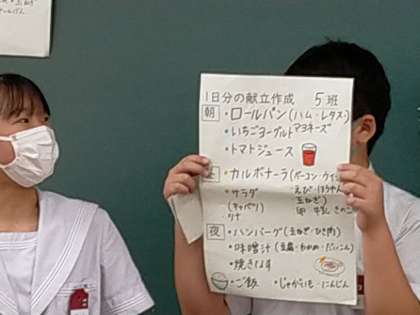 1日分の献立作成 5班
朝 ・ロールパン(ハム・レタス)
・いちごヨーグルト マヨネーズ
・トマトジュース
・カルボナーラ(ベーコン・
・サラダ
(キャベツ
えび・ほうれん
玉ねぎ)
卵 牛乳 きのこ
夜 ・ハンバーグ(玉ねぎ・ひき肉)
・味噌汁(豆腐・わかめ・だいこん)
・焼きなす
・ご飯 ・じゃがいも・にんじん